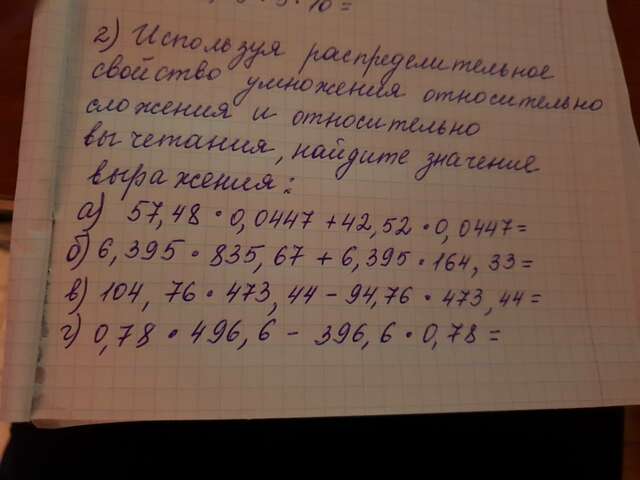 · 10 =
2) Используя распределительное
свойство умножения относительно
сложения и относительно
вычетания, найдите значение
выражения:
а) 57,48 · 0,0447 + 42,52 · 0,0447 =
б) 6,395 · 835,67 + 6,395 · 164,33 =
в) 104,76 · 473,44 - 94,76 · 473,44 =
г) 0,78 · 496,6 - 396,6 · 0,78 =